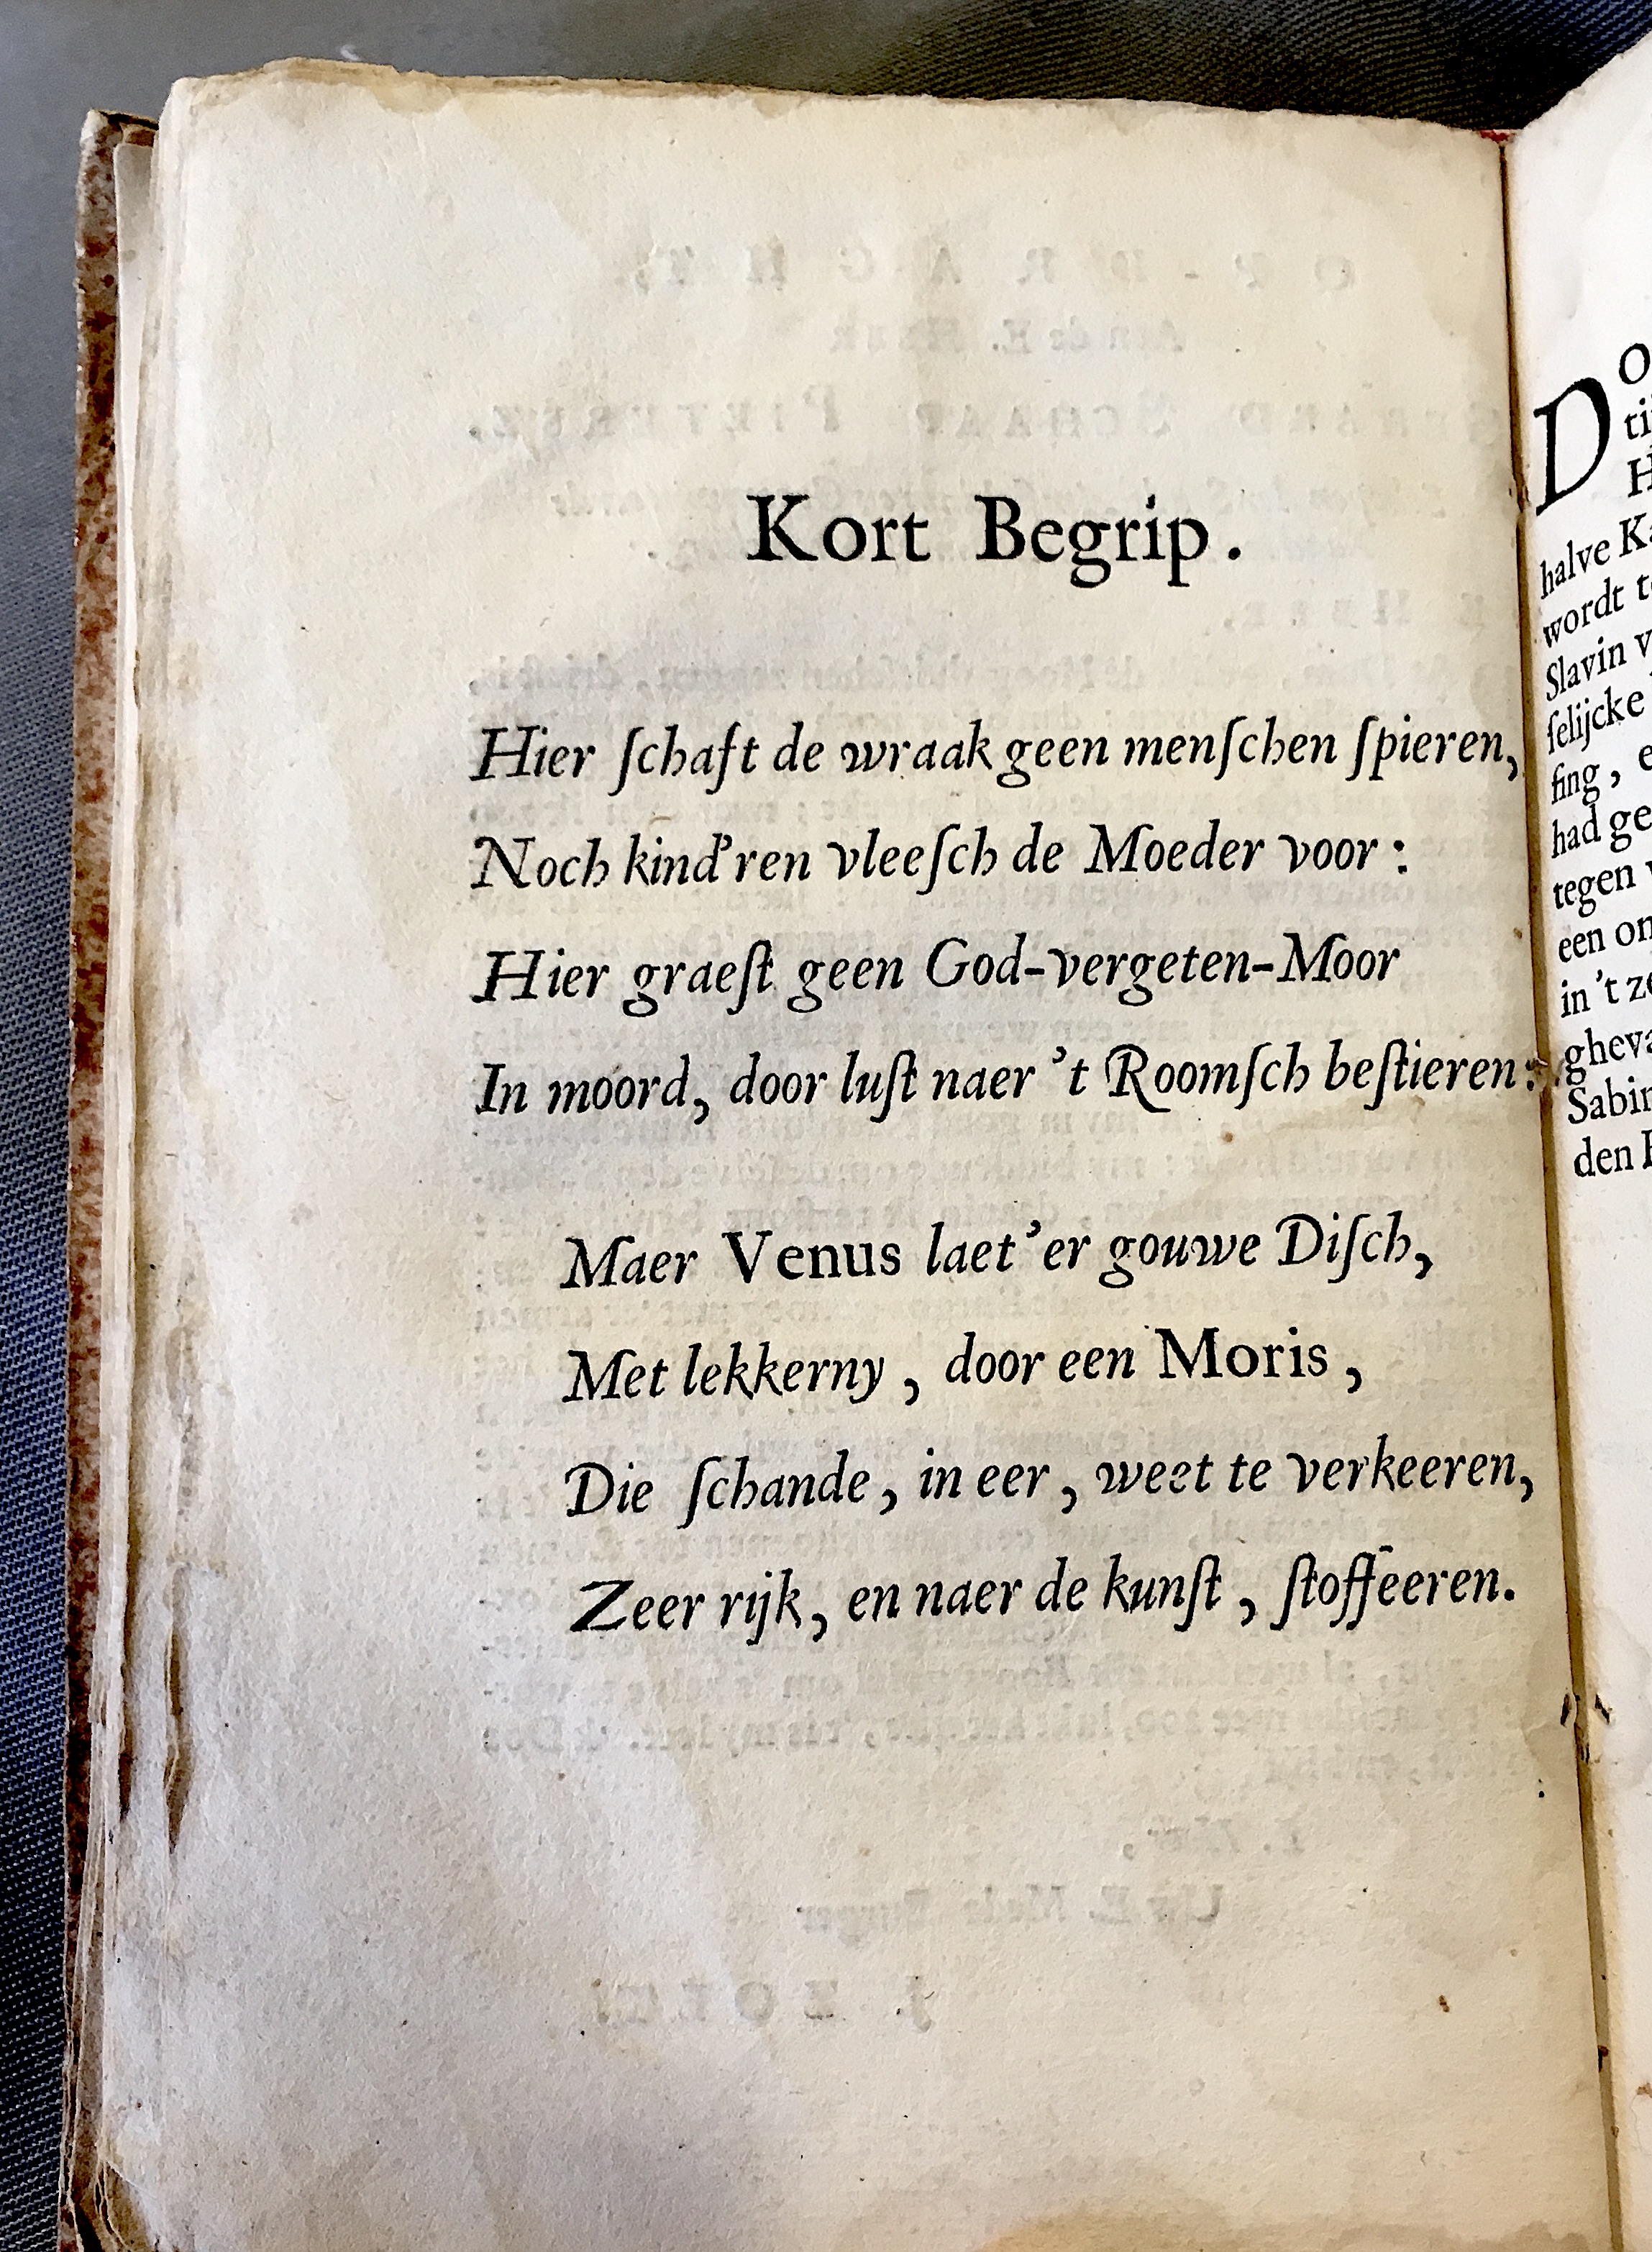 Kort Begrip.
Hier ſchaft de wraak geen menſchen ſpieren,
Noch kind'ren vleeſch de Moeder voor :
Hier graeſt geen God-vergeten-Moor
In moord, door luſt naer 't Roomſch beſtieren:
Maer Venus laet'er gouwe Diſch,
Met lekkerny , door een Moris ,
Die ſchande , in eer , weet te verkeeren,
Zeer rijk, en naer de kunſt , ſtoffeeren.
D
halve
wordt
Slavin
ſelijcke
ſing ,
had
tegen
een
in 't
Sabin
den